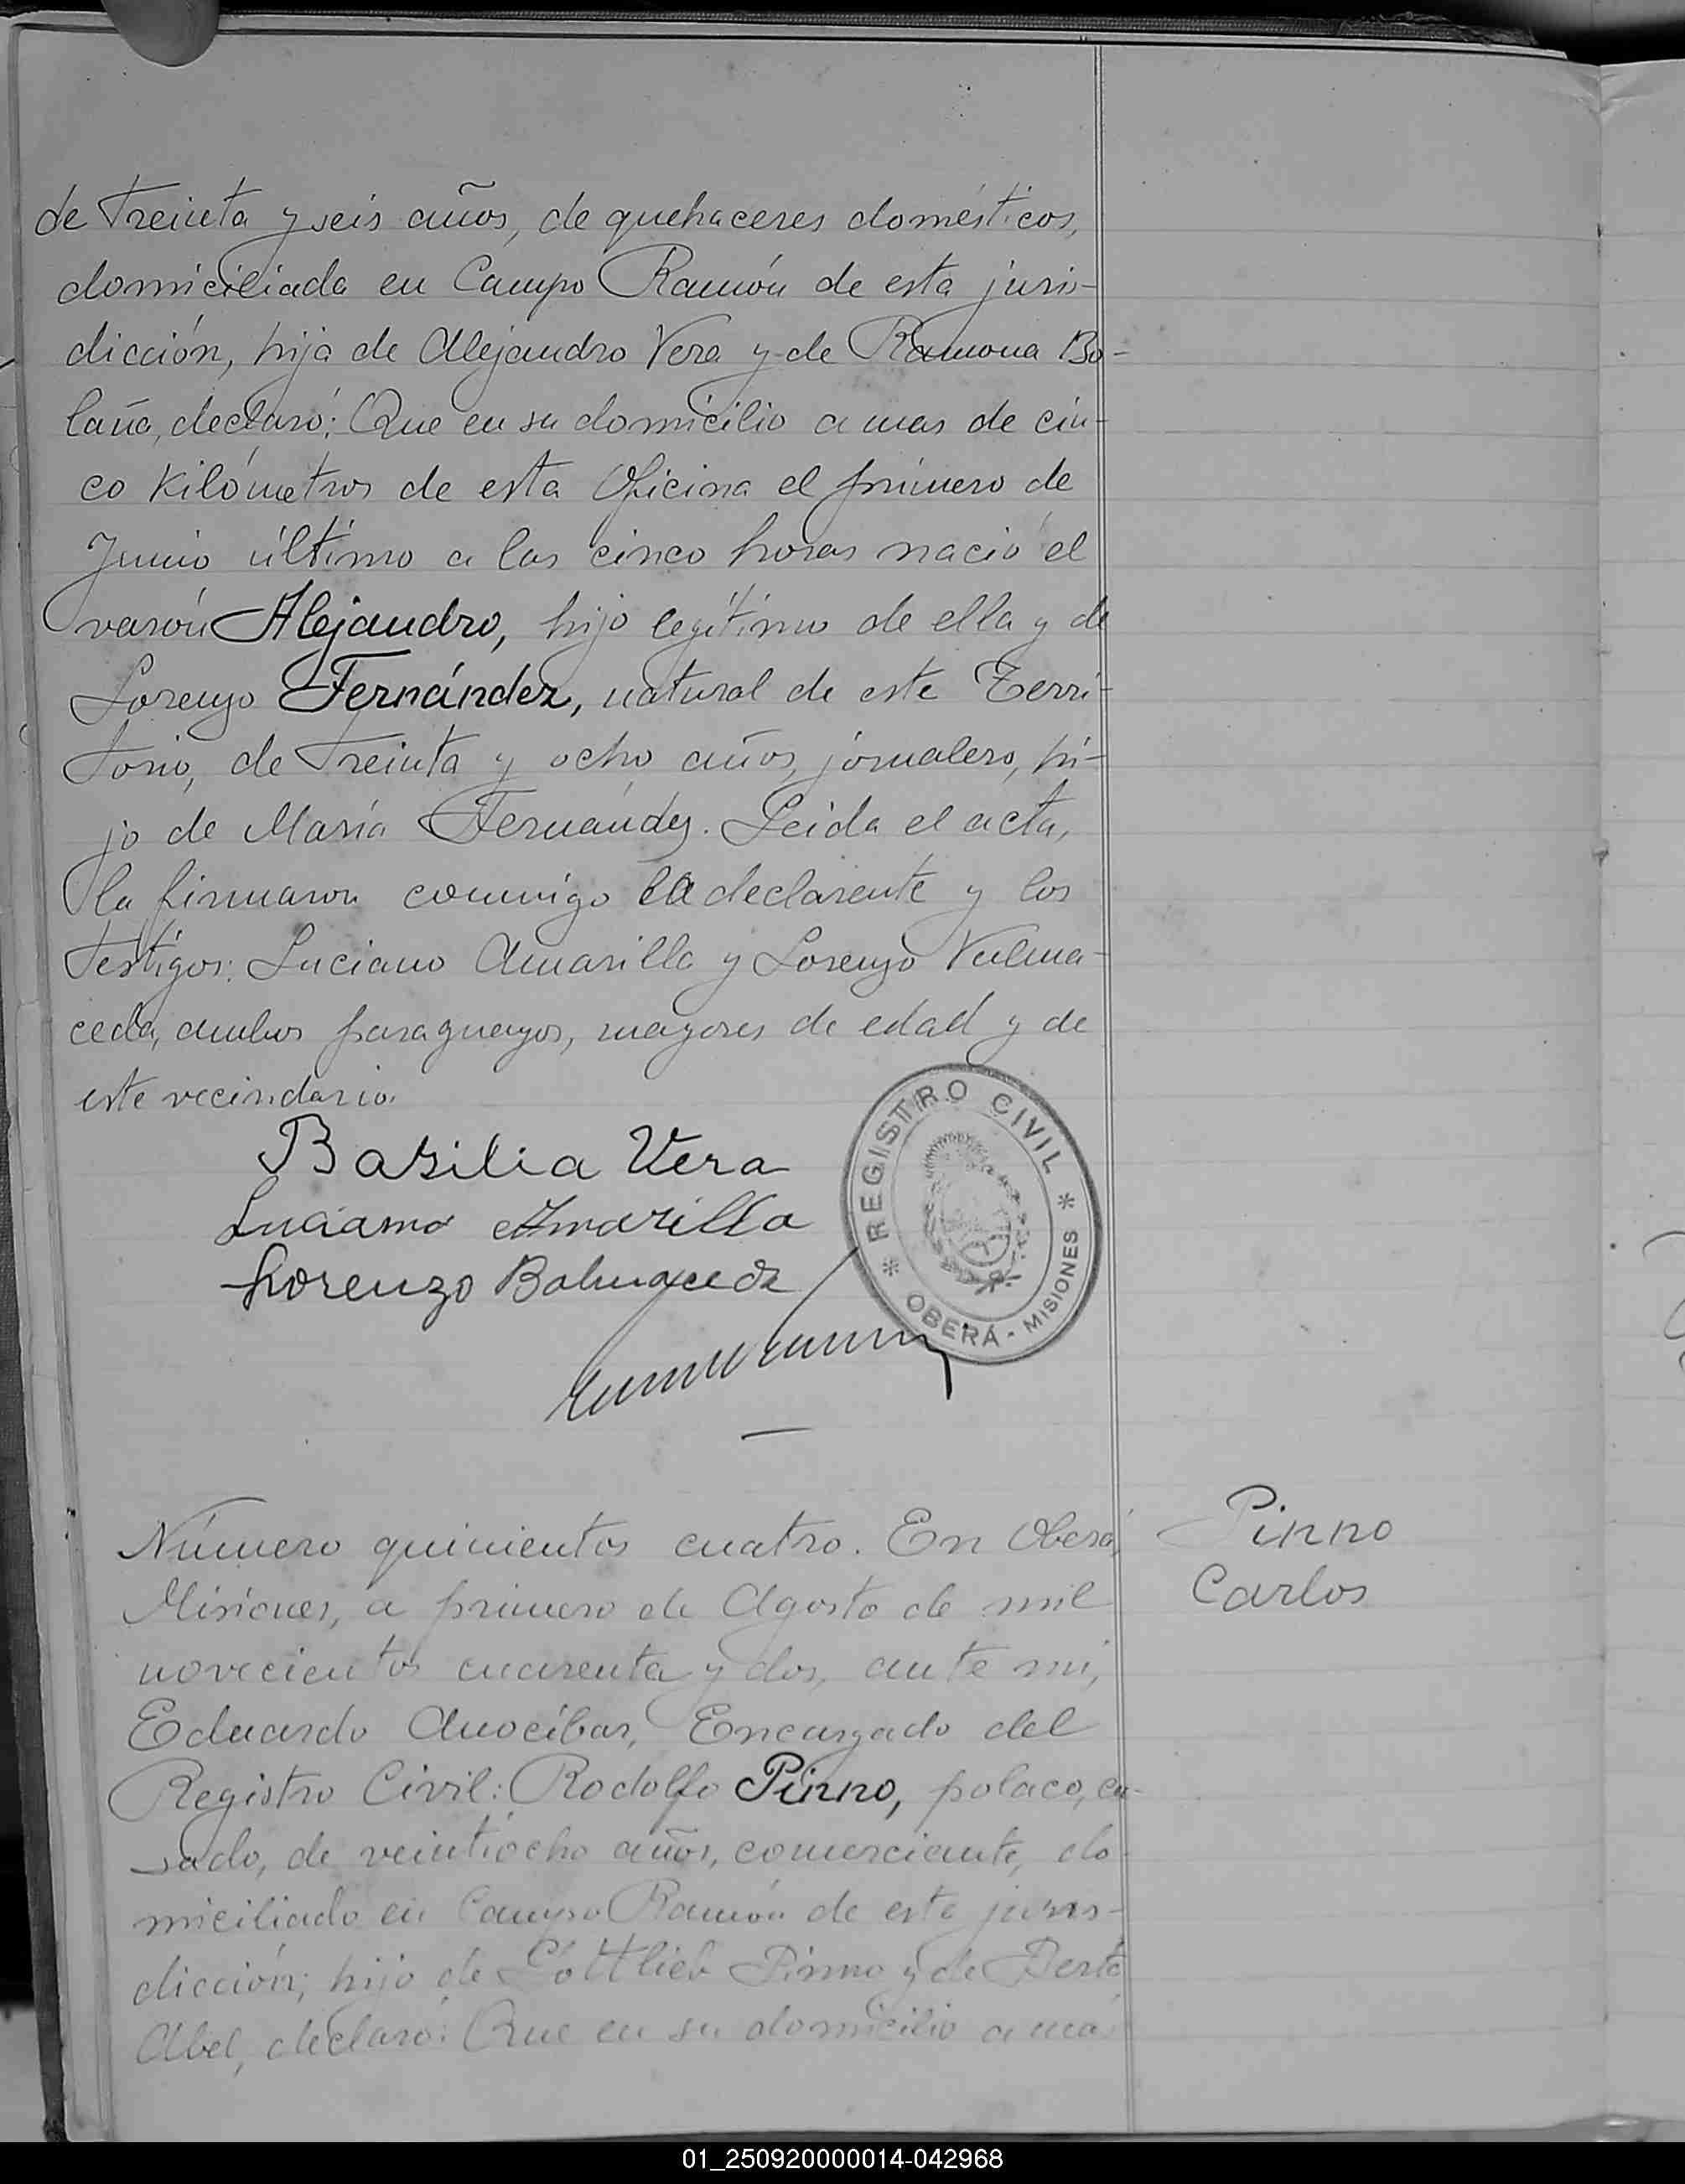 de treinta y seis años, de quehaceres domésticos,
domiciliada en Campo Ramón de esta juris-
dicción, hija de Alejandro Vera y de Ramona Bo-
laña, declaró: Que en su domicilio a mas de cin-
co kilómetros de esta Oficina el primero de
Junio último a las cinco horas nació el
varón Alejandro, hijo legítimo de ella y de
Lorenzo Fernández, natural de este Terri-
torio, de treinta y ocho años, jornalero, hi-
jo de María Fernández. Leida el acta,
la firmaron conmigo la declarente y los
testigos: Luciano Amarilla y Lorenzo Valma-
ceda, ambos paraguayos, mayores de edad y de
este vecindario.
Basilia Vera
Luciano Amarilla
Lorenzo Balmaceda
REGISTRO CIVIL
OBERÁ - MISIONES
Número quinientos cuatro. En Oberá,
Misiones, a primero de Agosto de mil
novecientos cuarenta y dos, ante mi,
Eduardo Anocíbar, Encargado del
Registro Civil: Rodolfo Pinno, polaco, ca-
sado, de veintiocho años, comerciante, do-
miciliado en Campo Ramón de esta juris-
dicción, hijo de Gottlieb Pinno y de Berta
Abel, declaró: Que en su domicilio a ma
Pinno
Carlos
01_250920000014-042968